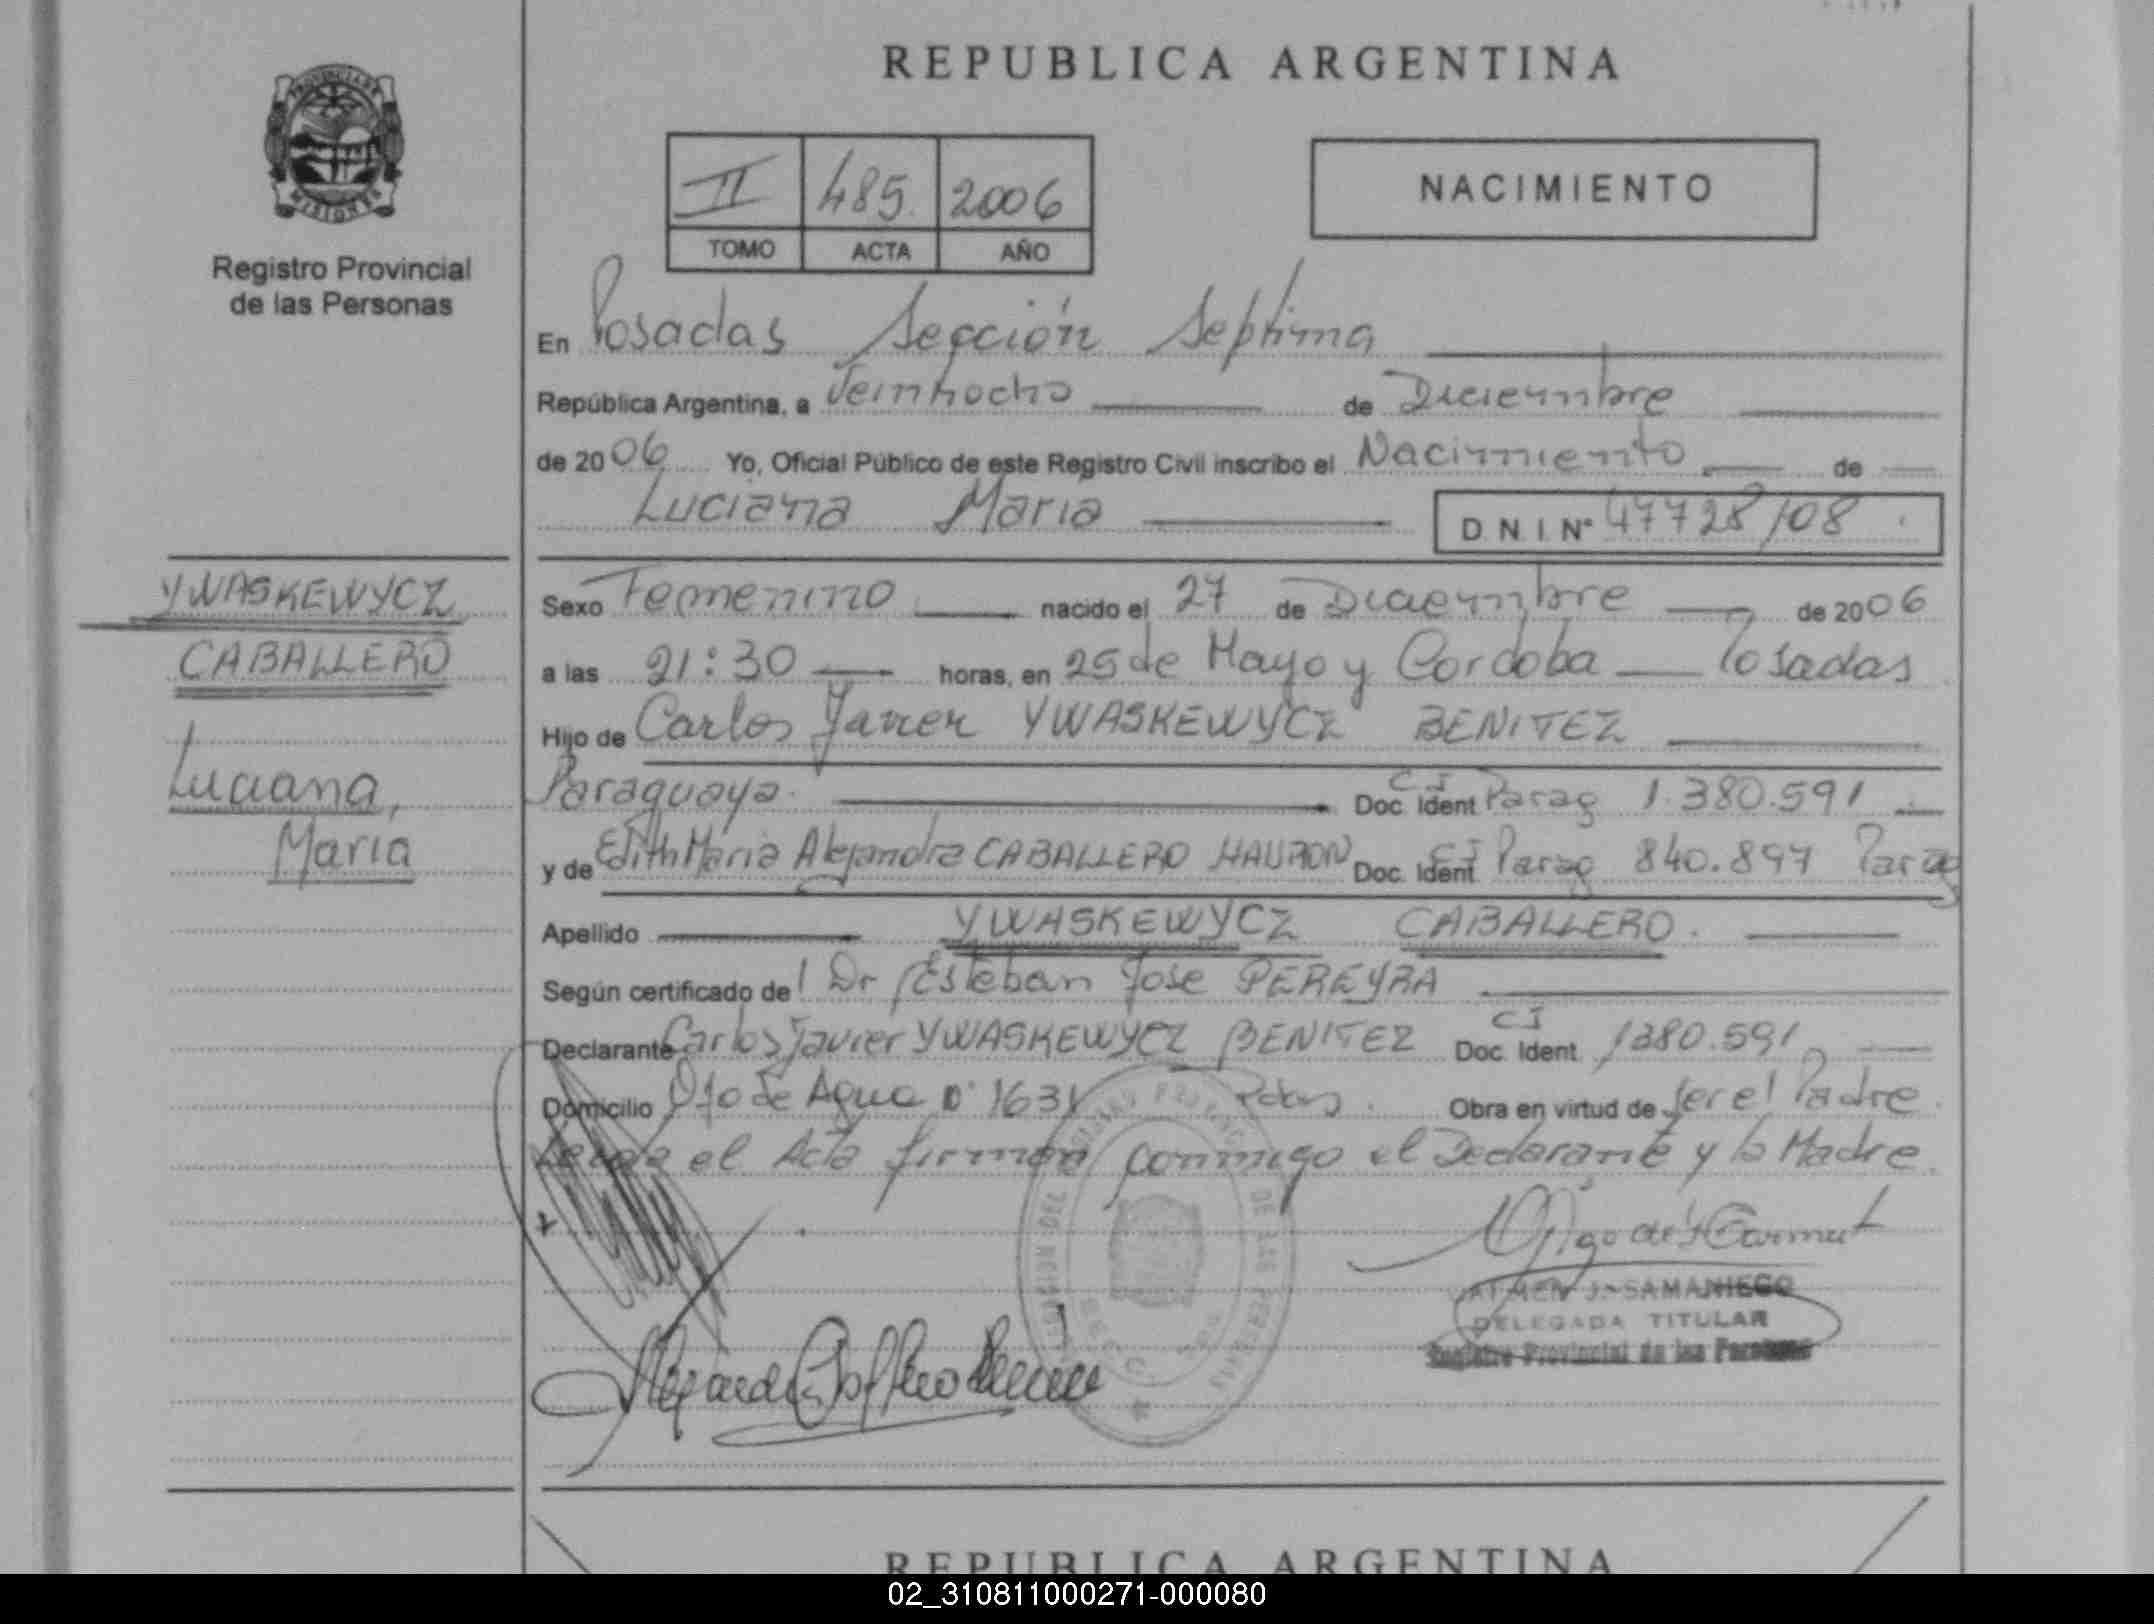 REPUBLICA ARGENTINA
PROVINCIA DE MISIONES
Registro Provincial
de las Personas
II 485. 2006
TOMO ACTA AÑO
NACIMIENTO
En Posadas Sección Septima
República Argentina, a Veintiocho de Diciembre
de 2006 Yo, Oficial Público de este Registro Civil inscribo el Nacimiento de
Luciana Maria D.N.I.Nº 47728108
YWASKEWYCZ
CABALLERO
Luciana,
Maria
Sexo Femenino nacido el 27 de Diciembre de 2006
a las 21:30 horas, en 25 de Mayo y Cordoba Posadas
Hijo de Carlos Javier YWASKEWYCZ BENITEZ
Paraguaya. Doc. Ident CI Parag 1.380.591
y de Edith Maria Alejandra CABALLERO Doc. Ident CI Parag 840.897 Parag
Apellido YWASKEWYCZ CABALLERO.
Según certificado del Dr Esteban Jose PEREYRA
Declarante Carlos Javier YWASKEWYCZ BENITEZ Doc. Ident CI 1380.591
Domicilio Ojo de Agua nº 1631 Pdas. Obra en virtud de ser el Padre.
Leida el Acta firman conmigo el Declarante y la Madre.
CARMEN J. SAMANIEGO
DELEGADA TITULAR
Registro Provincial de las Personas
REPUBLICA ARGENTINA
02_310811000271-000080